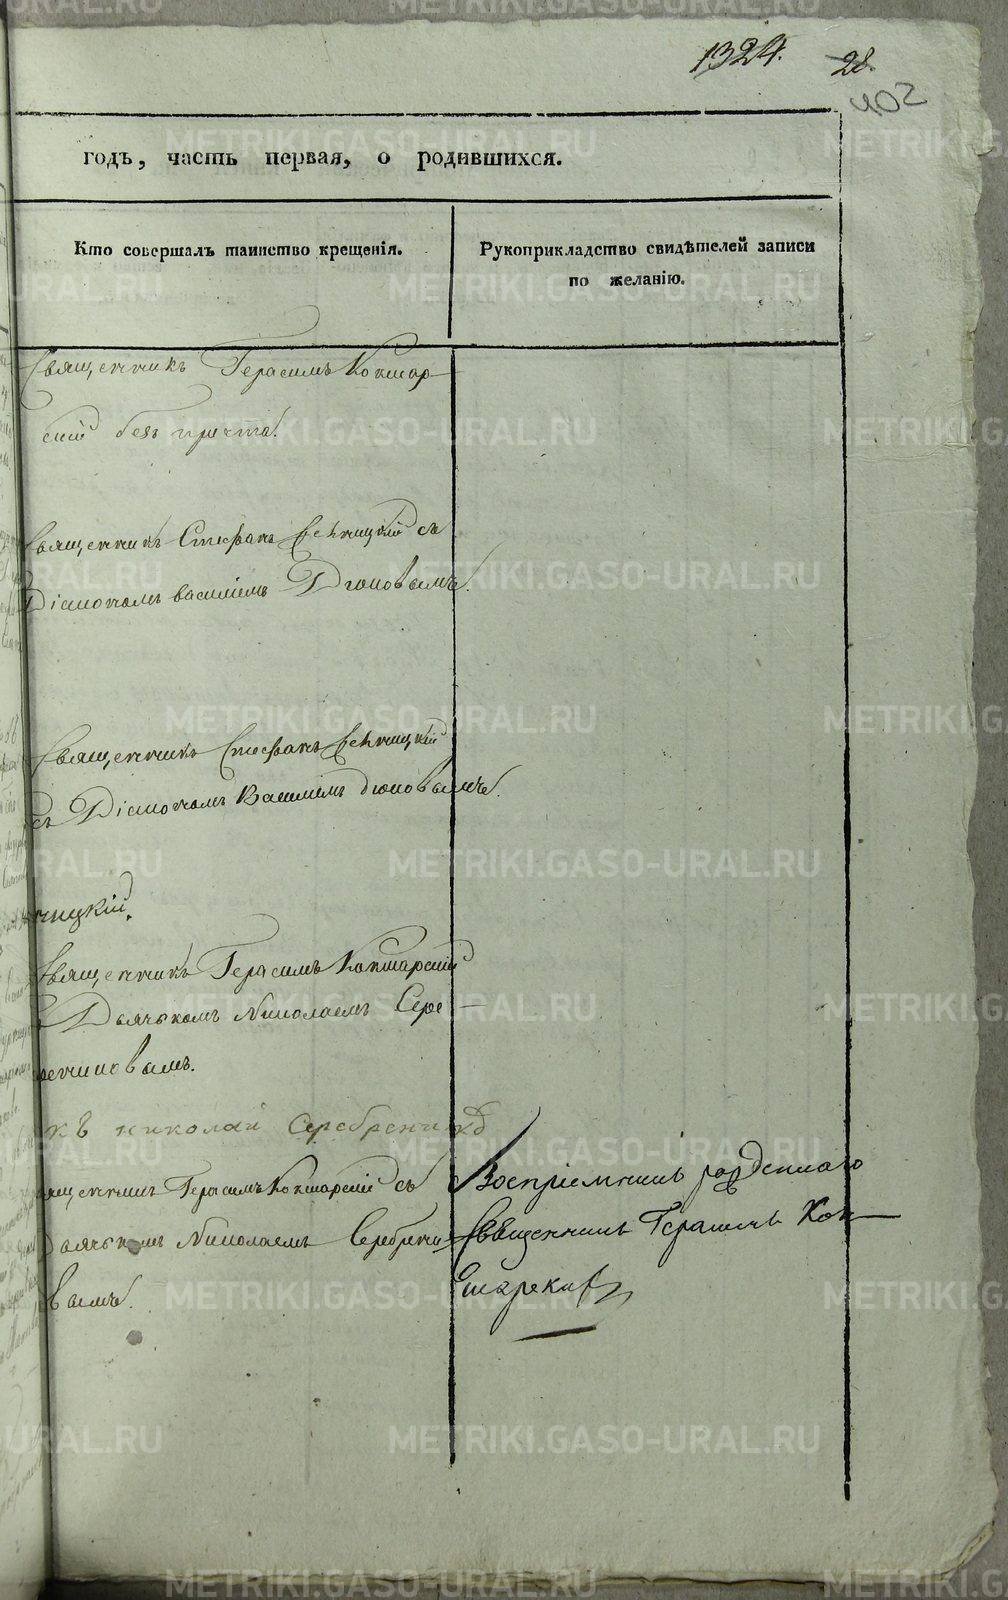 1324. 28.
402
годъ, часть первая, о родившихся.
Кто совершалъ таинство крещенія.
Рукоприкладство свидѣтелей записи
по желанію.
Священникъ Герасимъ Кокшар
скій безъ причта.
Священникъ Стефанъ съ
Діакономъ Василіемъ Дюновымъ.
Священникъ Стефанъ
съ Діакономъ Василіемъ Дюновымъ.
ницкій.
Священникъ Герасимъ Кокшарскій
Дьячькомъ Николаемъ Сере-
вымъ.
къ николай Серебрени
ященникъ Герасимъ Кокшарскій съ
Дьячькомъ Николаемъ Серебрени
вымъ.
Воспріемникъ
Священникъ Герасимъ Кок
шарскій
METRIKI.GASO-URAL.RU